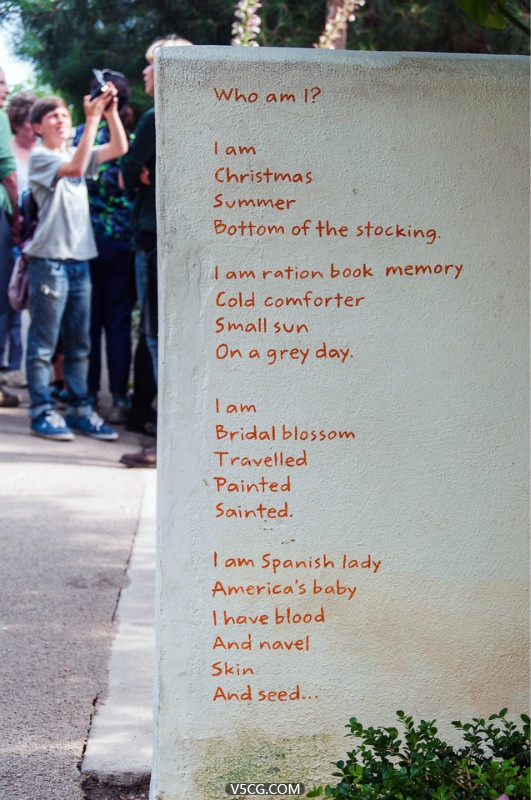 Who am I?
I am
Christmas
Summer
Bottom of the stocking.
I am ration book memory
Cold comforter
Small sun
On a grey day.
I am
Bridal blossom
Travelled
Painted
Sainted.
I am Spanish lady
America's baby
I have blood
And navel
Skin
And seed...
V5CG.COM